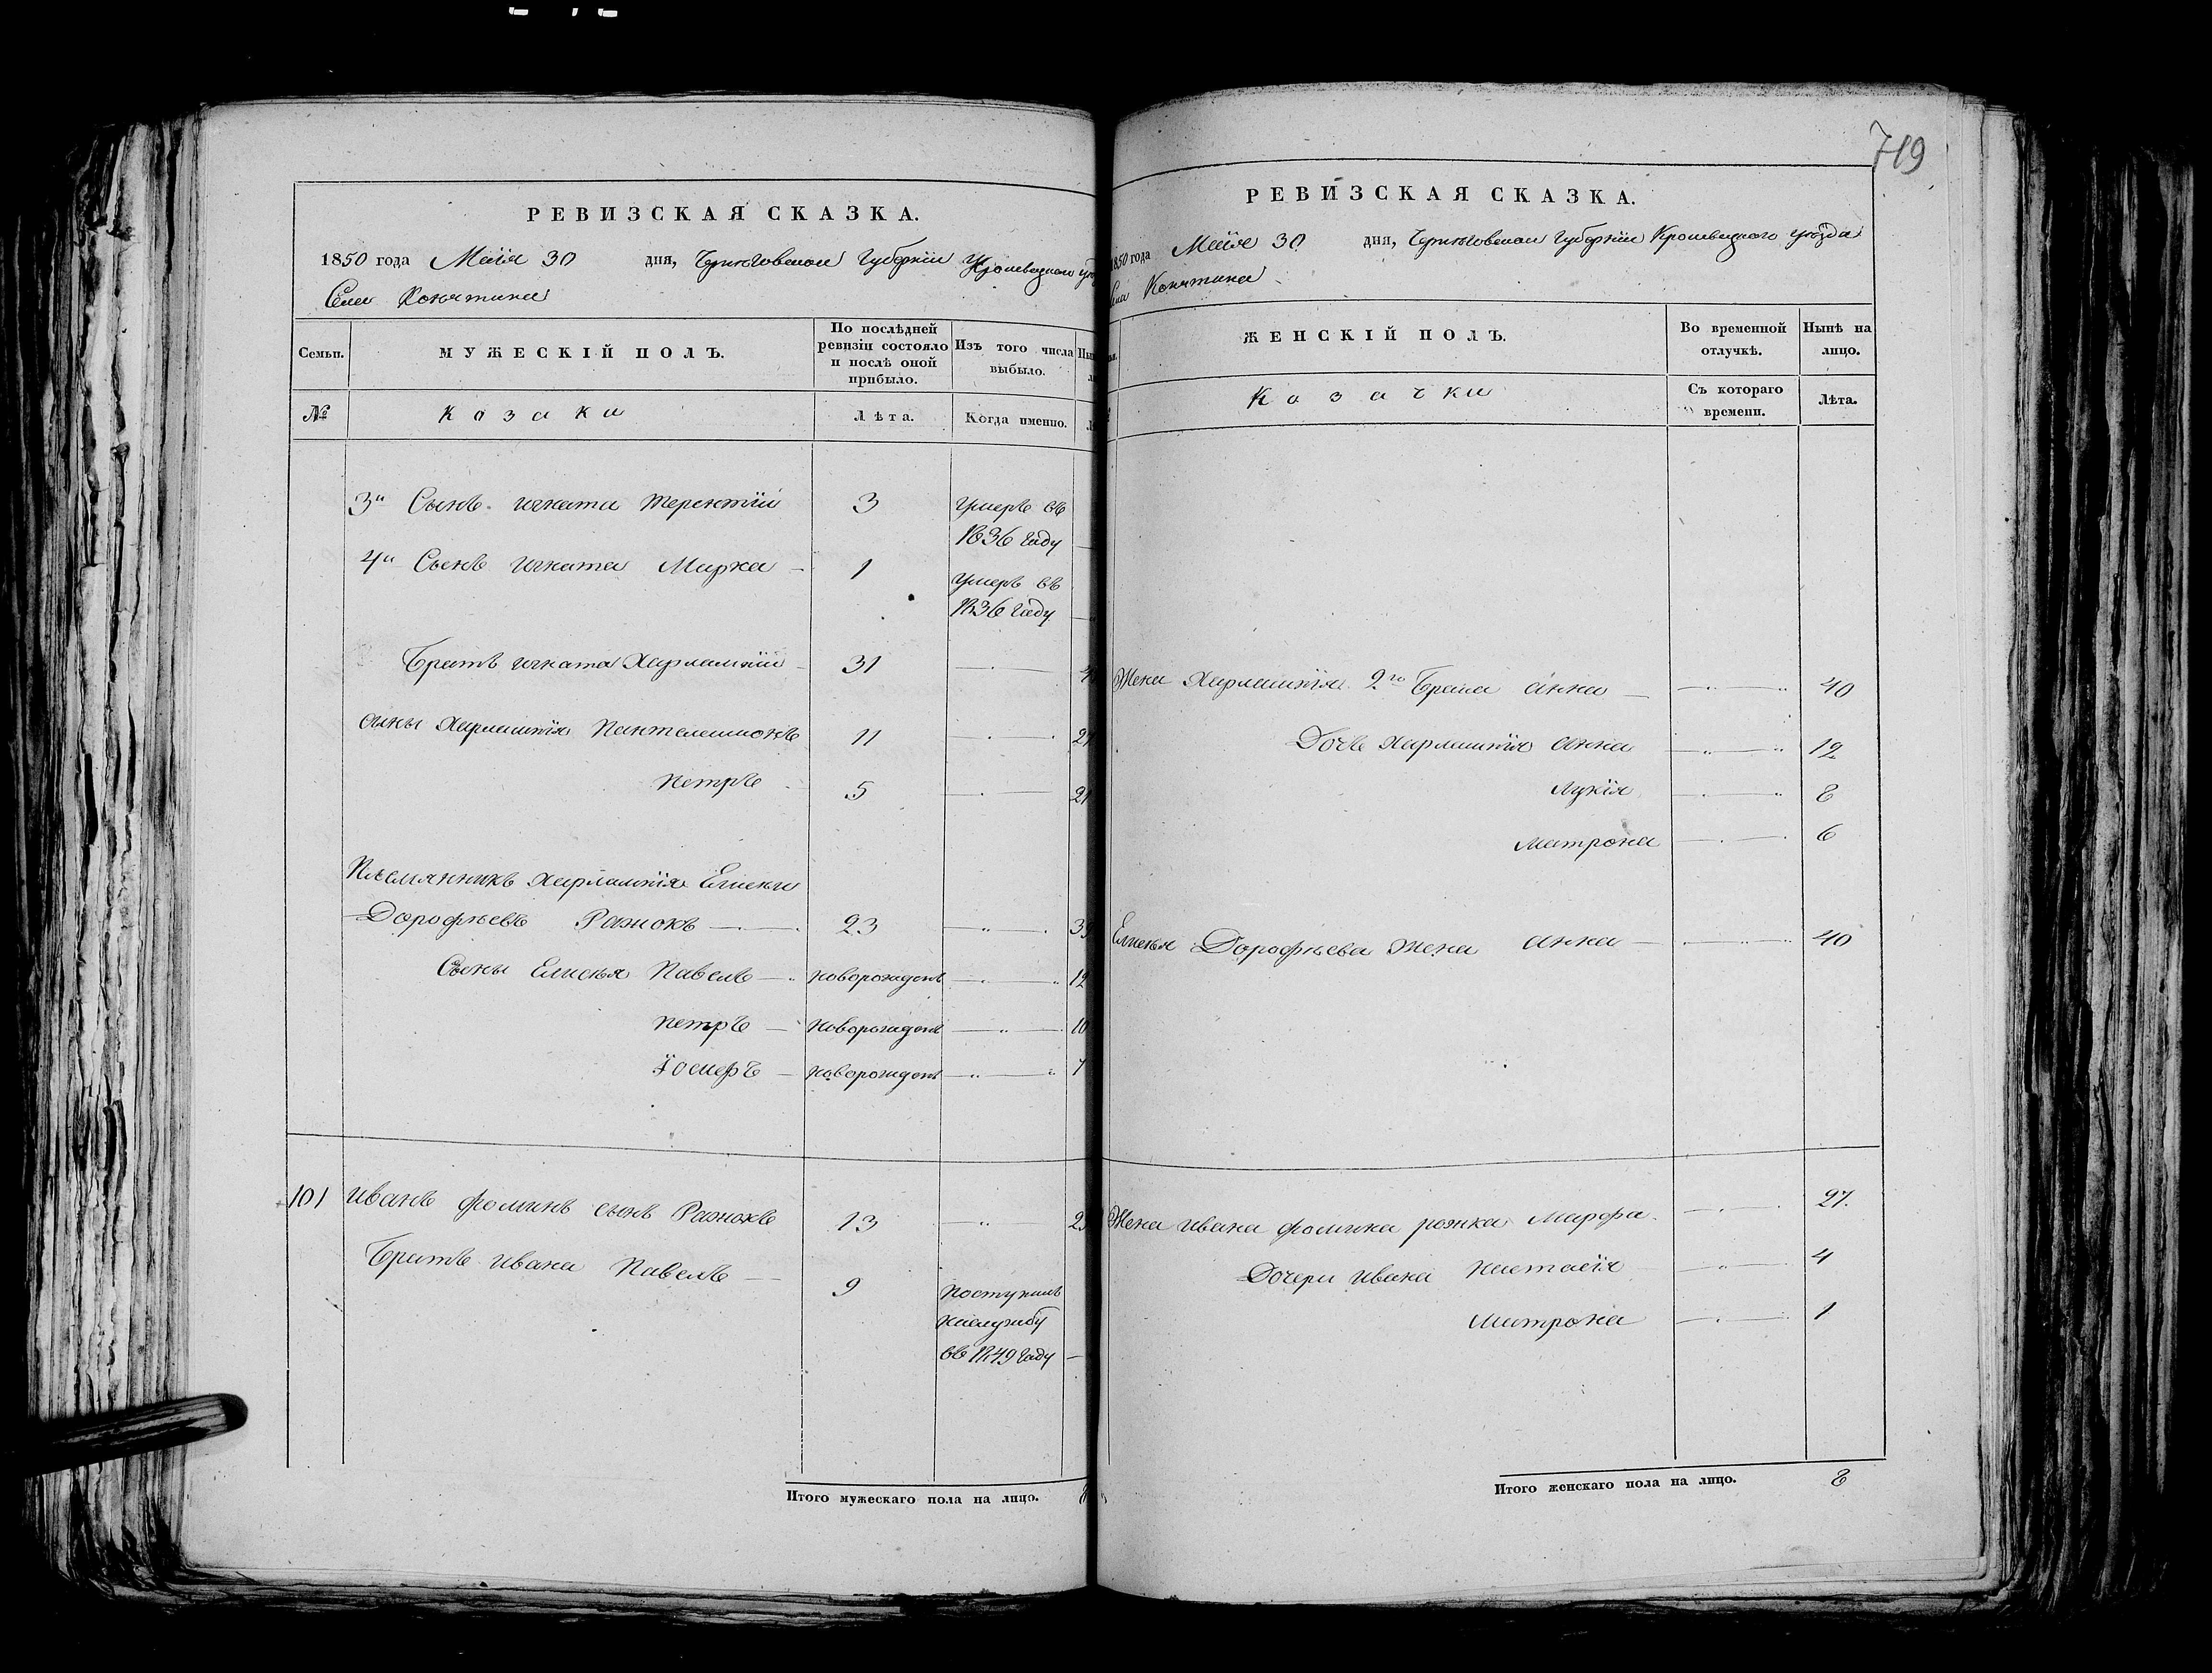 РЕВИЗСКАЯ СКАЗКА.
1850 года Маія 30 дня, Черниговской Губерніи Кролевецкого уѣз
Села Конятина
Семьи.
МУЖЕСКІЙ ПОЛЪ.
По послѣдней ревизіи состояло и послѣ оной прибыло.
Изъ того числа выбыло.
№
Козаки
Лѣта.
Когда именно.
3й Сынъ игната терентій 3 умеръ въ
1836 году
4й Сынъ игната Марко 1 умеръ въ
1836 году
Братъ игната Харлампій 31
сыны Харлампія Пантелеимонъ 11
петръ 5 21
Племянникъ харлампія Елисей
Дорофѣевъ Рожокъ 23
Сыны Елисѣя Павелъ новорожденъ 12
петръ новорожденъ 10
Іосифъ новорожденъ 7
101 иванъ фоминъ сынъ Рожокъ 13
Братъ ивана Павелъ 9 поступилъ
на службу
въ 1849 году
Итого мужескаго пола на лицо. 8
719
РЕВИЗСКАЯ СКАЗКА.
1850 года Маія 30 дня, Черниговской Губерніи Кролевецкого уѣзда
Села Конятина
ЖЕНСКІЙ ПОЛЪ.
Во временной отлучкѣ.
Нынѣ на лицо.
Козачки
Съ котораго времени.
Лѣта.
Жена Харлампія 2го Брата анна 40
Дочь харлампія анна 12
Лукія 8
матрона 6
Елисѣя Дорофѣева жена анна 40
Жена ивана фомина рожка Марфа 27.
Дочери ивана настасія 4
матрона 1
Итого женскаго пола на лицо. 8